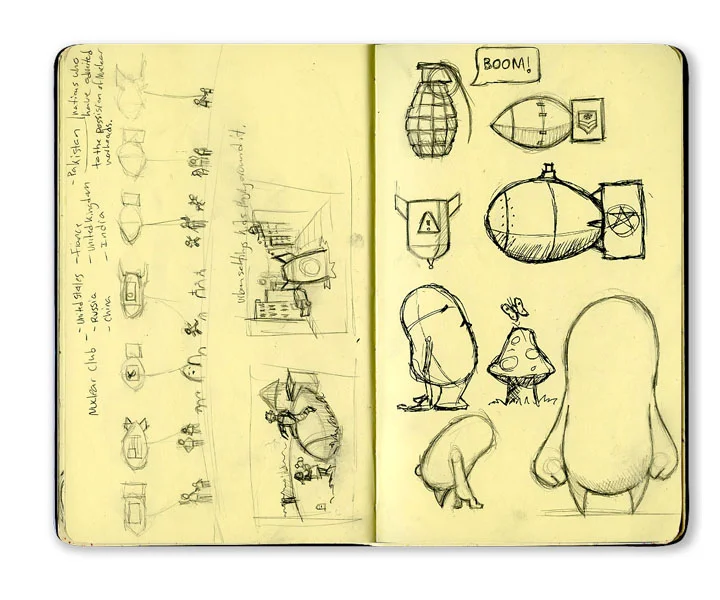 Nuclear Club
- United States
- Russia
- China
- France
- United Kingdom
- India
- Pakistan
(nations who
have admitted
to the possision of Nuclear
warheads.
Urban settings. kids play around it.
BOOM!
!